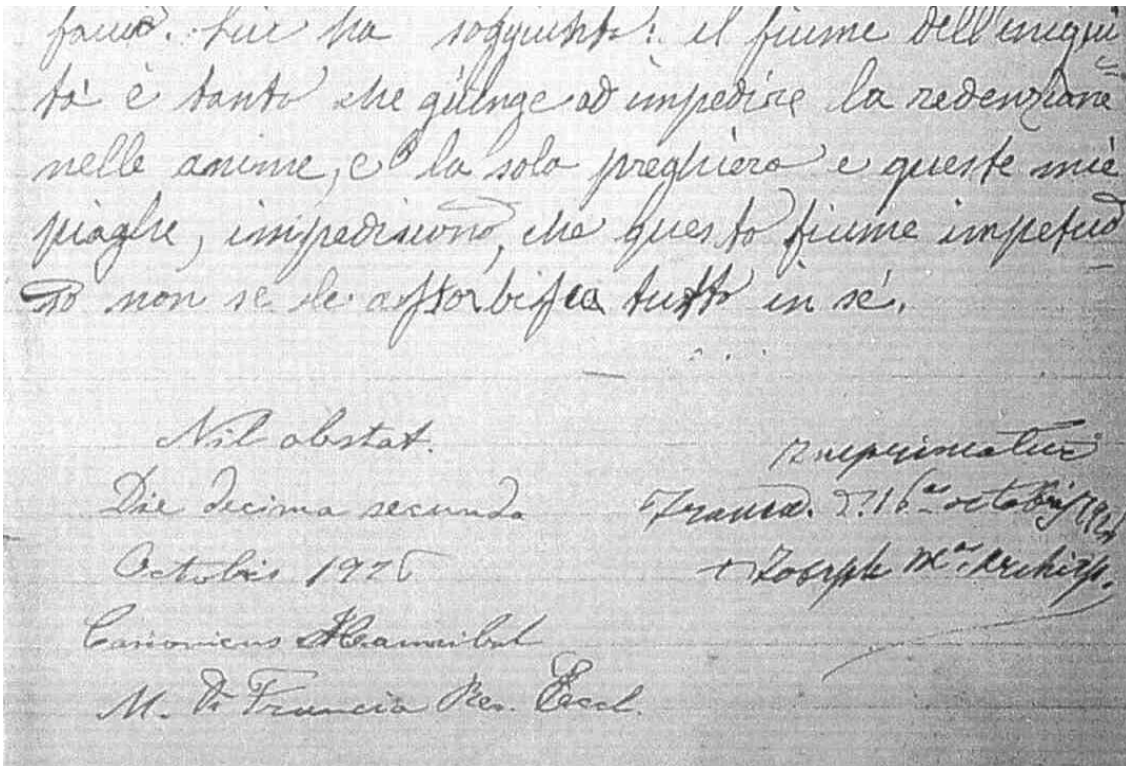 ha soggiunto: il fiume dell'iniqui
tà è tanto che giunge ad impedire la redenzione
nelle anime, e la sola preghiera e queste mie
piaghe, impediscono, che questo fiume impetuo
so non se le assorbisca tutto in sé.
Nil obstat.
Die decima secunda
Octobris 1926
Canonicus Hannibal
M. Di Francia Rev. Eccl.
Imprimatur
d. 16 octobris 1926
+ Joseph M. Archiep.